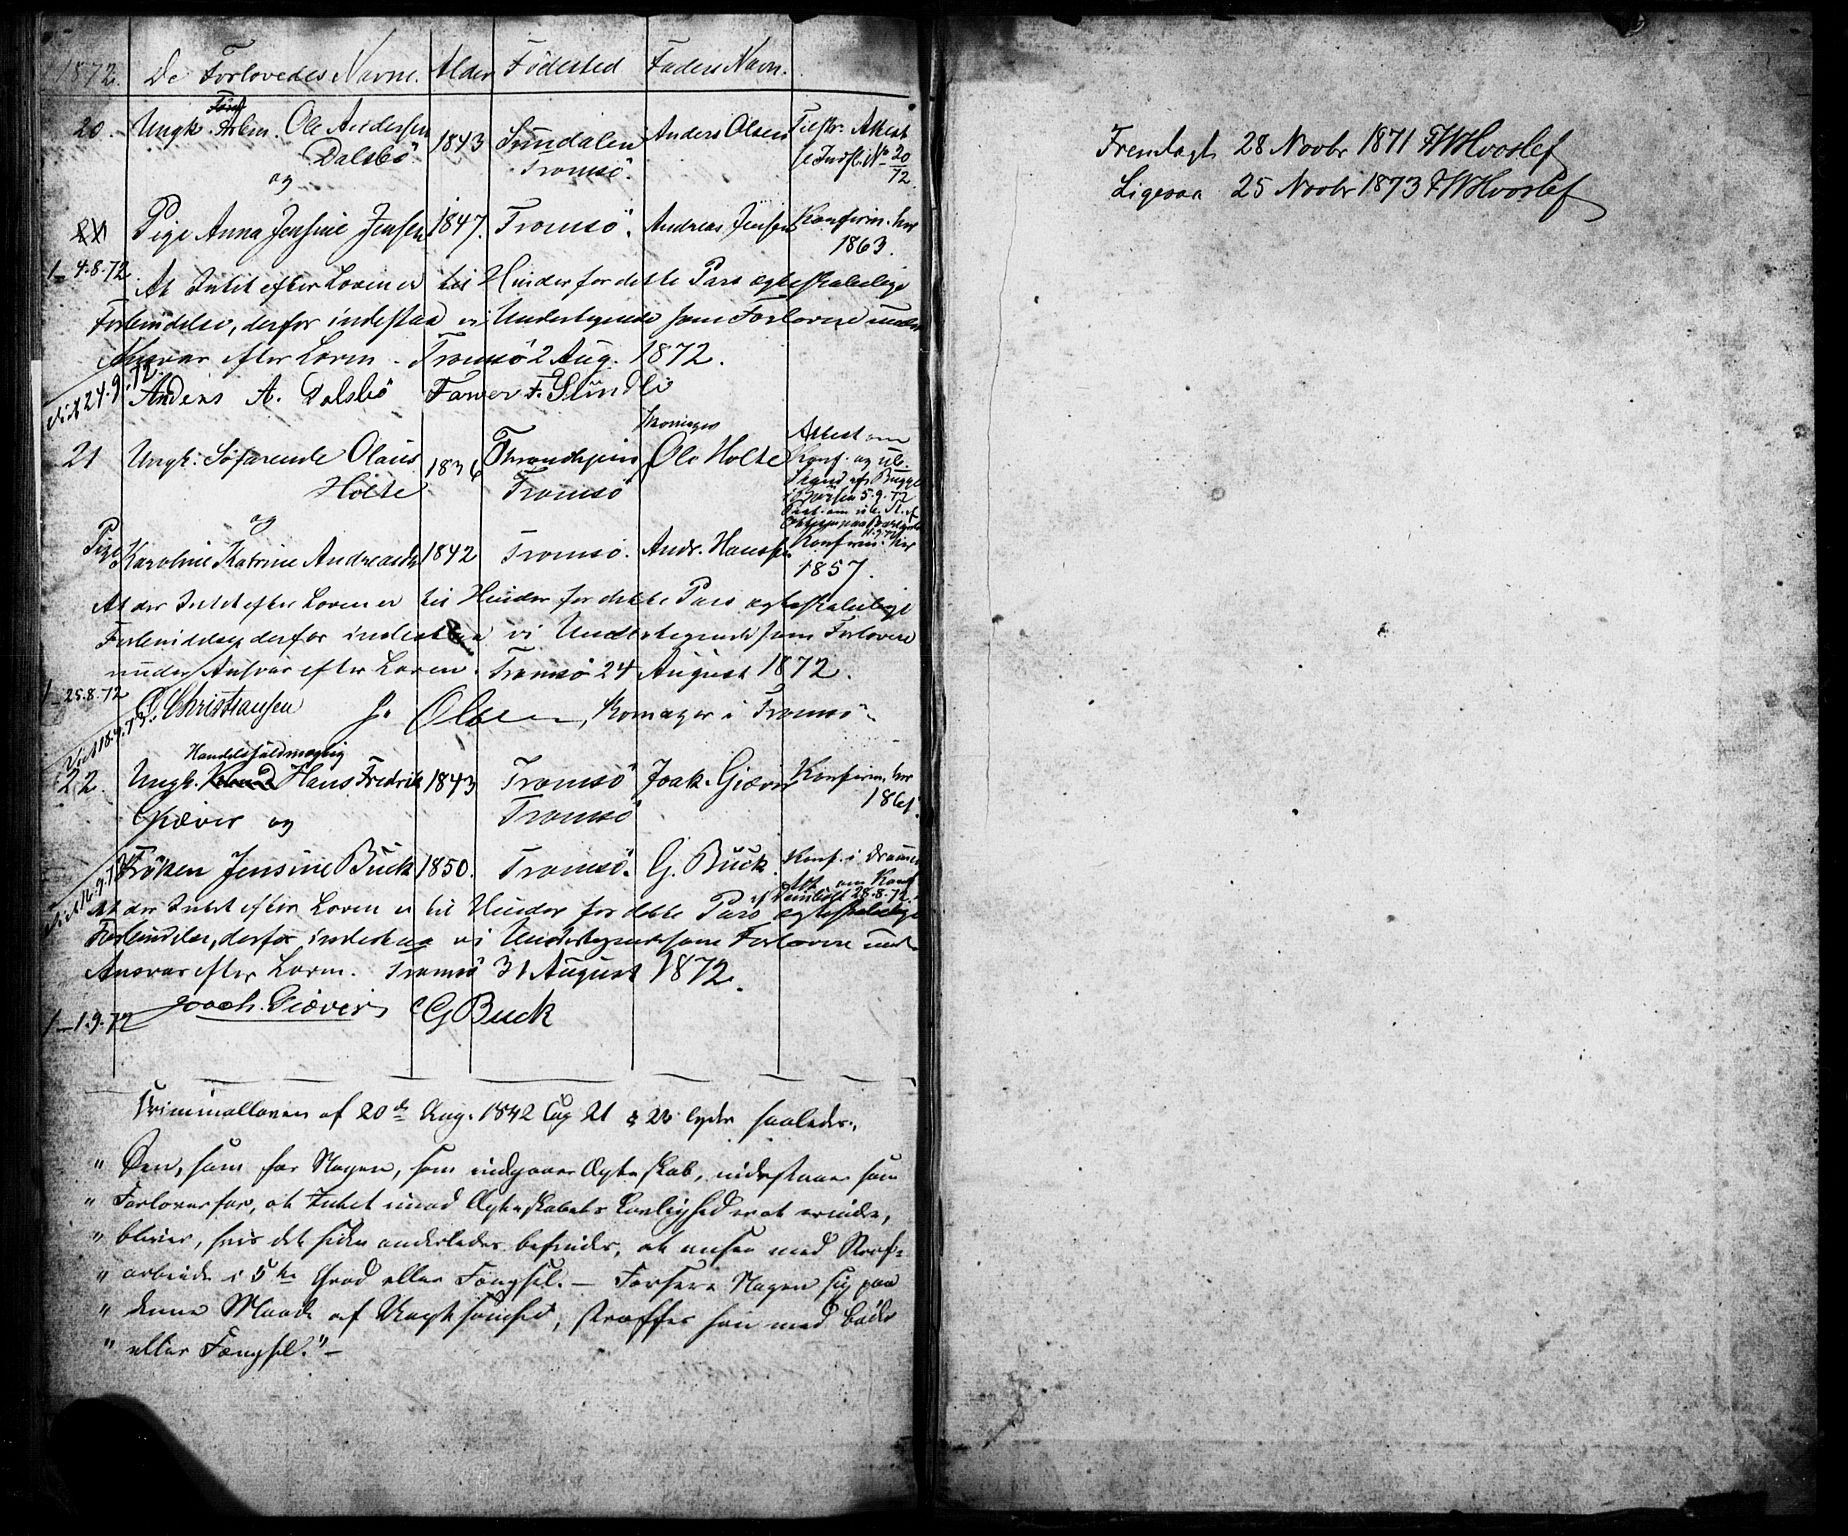 1872. De Forlovedes Navne. Alder Födested Faders Navn.
20. Ungk. Arbm. Ole Andersen 1843 Sundalen Anders Olsen Tilstr. Attest
Dalsbö Tromsö. se Indst. No 20/72
og
Pige Anna Jensine Jensen 1847. Tromsö. Andreas Jensen Konfirm. her
1863.
1_ 4.8.72
At Intet efter Loven er til Hinder for dette Pars ægteskabelige
Forbindelse, derfor indestaa vi Undertegnede som Forlovere under
Ansvar efter Loven. Tromsö 2 Aug. 1872.
Viet 24.9.72.
Anders A. Dalsbö F.
21 Ungk. Söfarende Olaus 1836 Throndhjem Ole Holte Attest om
Holte Tromsö Konf. og
5.9.72
og
Pige Karoline Katrine Andreasdr 1842 Tromsö. Andr. Hansen Konfirm. her
1857.
At der Intet efter Loven er til Hinder for dette Pars ægteskabelige
Forbindelse, derfor indestaa vi Undertegnede som Forlovere
under Ansvar efter Loven. Tromsö 24 August 1872.
1_ 25.8.72
C. Christiansen J. Olsen, Komager i Tromsö
Handelsfuldmægtig
22. Ungk. Hans Fredrik 1843 Tromsö Joak. Giæver Konfirm. her
Giæver og Tromsö 1861.
Fröken Jensine Buck 1850. Tromsö. G. Buck. Konf. i Drammen
Att. om Konf.
28.8.72.
At der Intet efter Loven er til Hinder for dette Pars ægteskabelige
Forbindelse, derfor indestaa vi Undertegnede som Forlovere under
Ansvar efter Loven. Tromsö 31 August 1872.
Joach. Giæver G Buck
1_ 1.9.72
Criminalloven af 20de Aug. 1842 Cap 21 § 22 lyder saaledes:,
" Den, som for Nogen, som indgaaer Ægteskab, indestaaer som
" Forlover for, at Intet imod Ægteskabets Lovlighed er at erindre,
" bliver, hvis det siden anderledes befindes, at ansee med Straf-
" arbeide i 5te Grad eller Fængsel. – Forseer Nogen sig paa
" denne Maade af Uagtsomhed, straffes han med Böder
" eller Fængsel." –
Fremlagt 28 Novbr 1871 FWHvoslef
Ligesaa 25 Novbr 1873 FWHvoslef